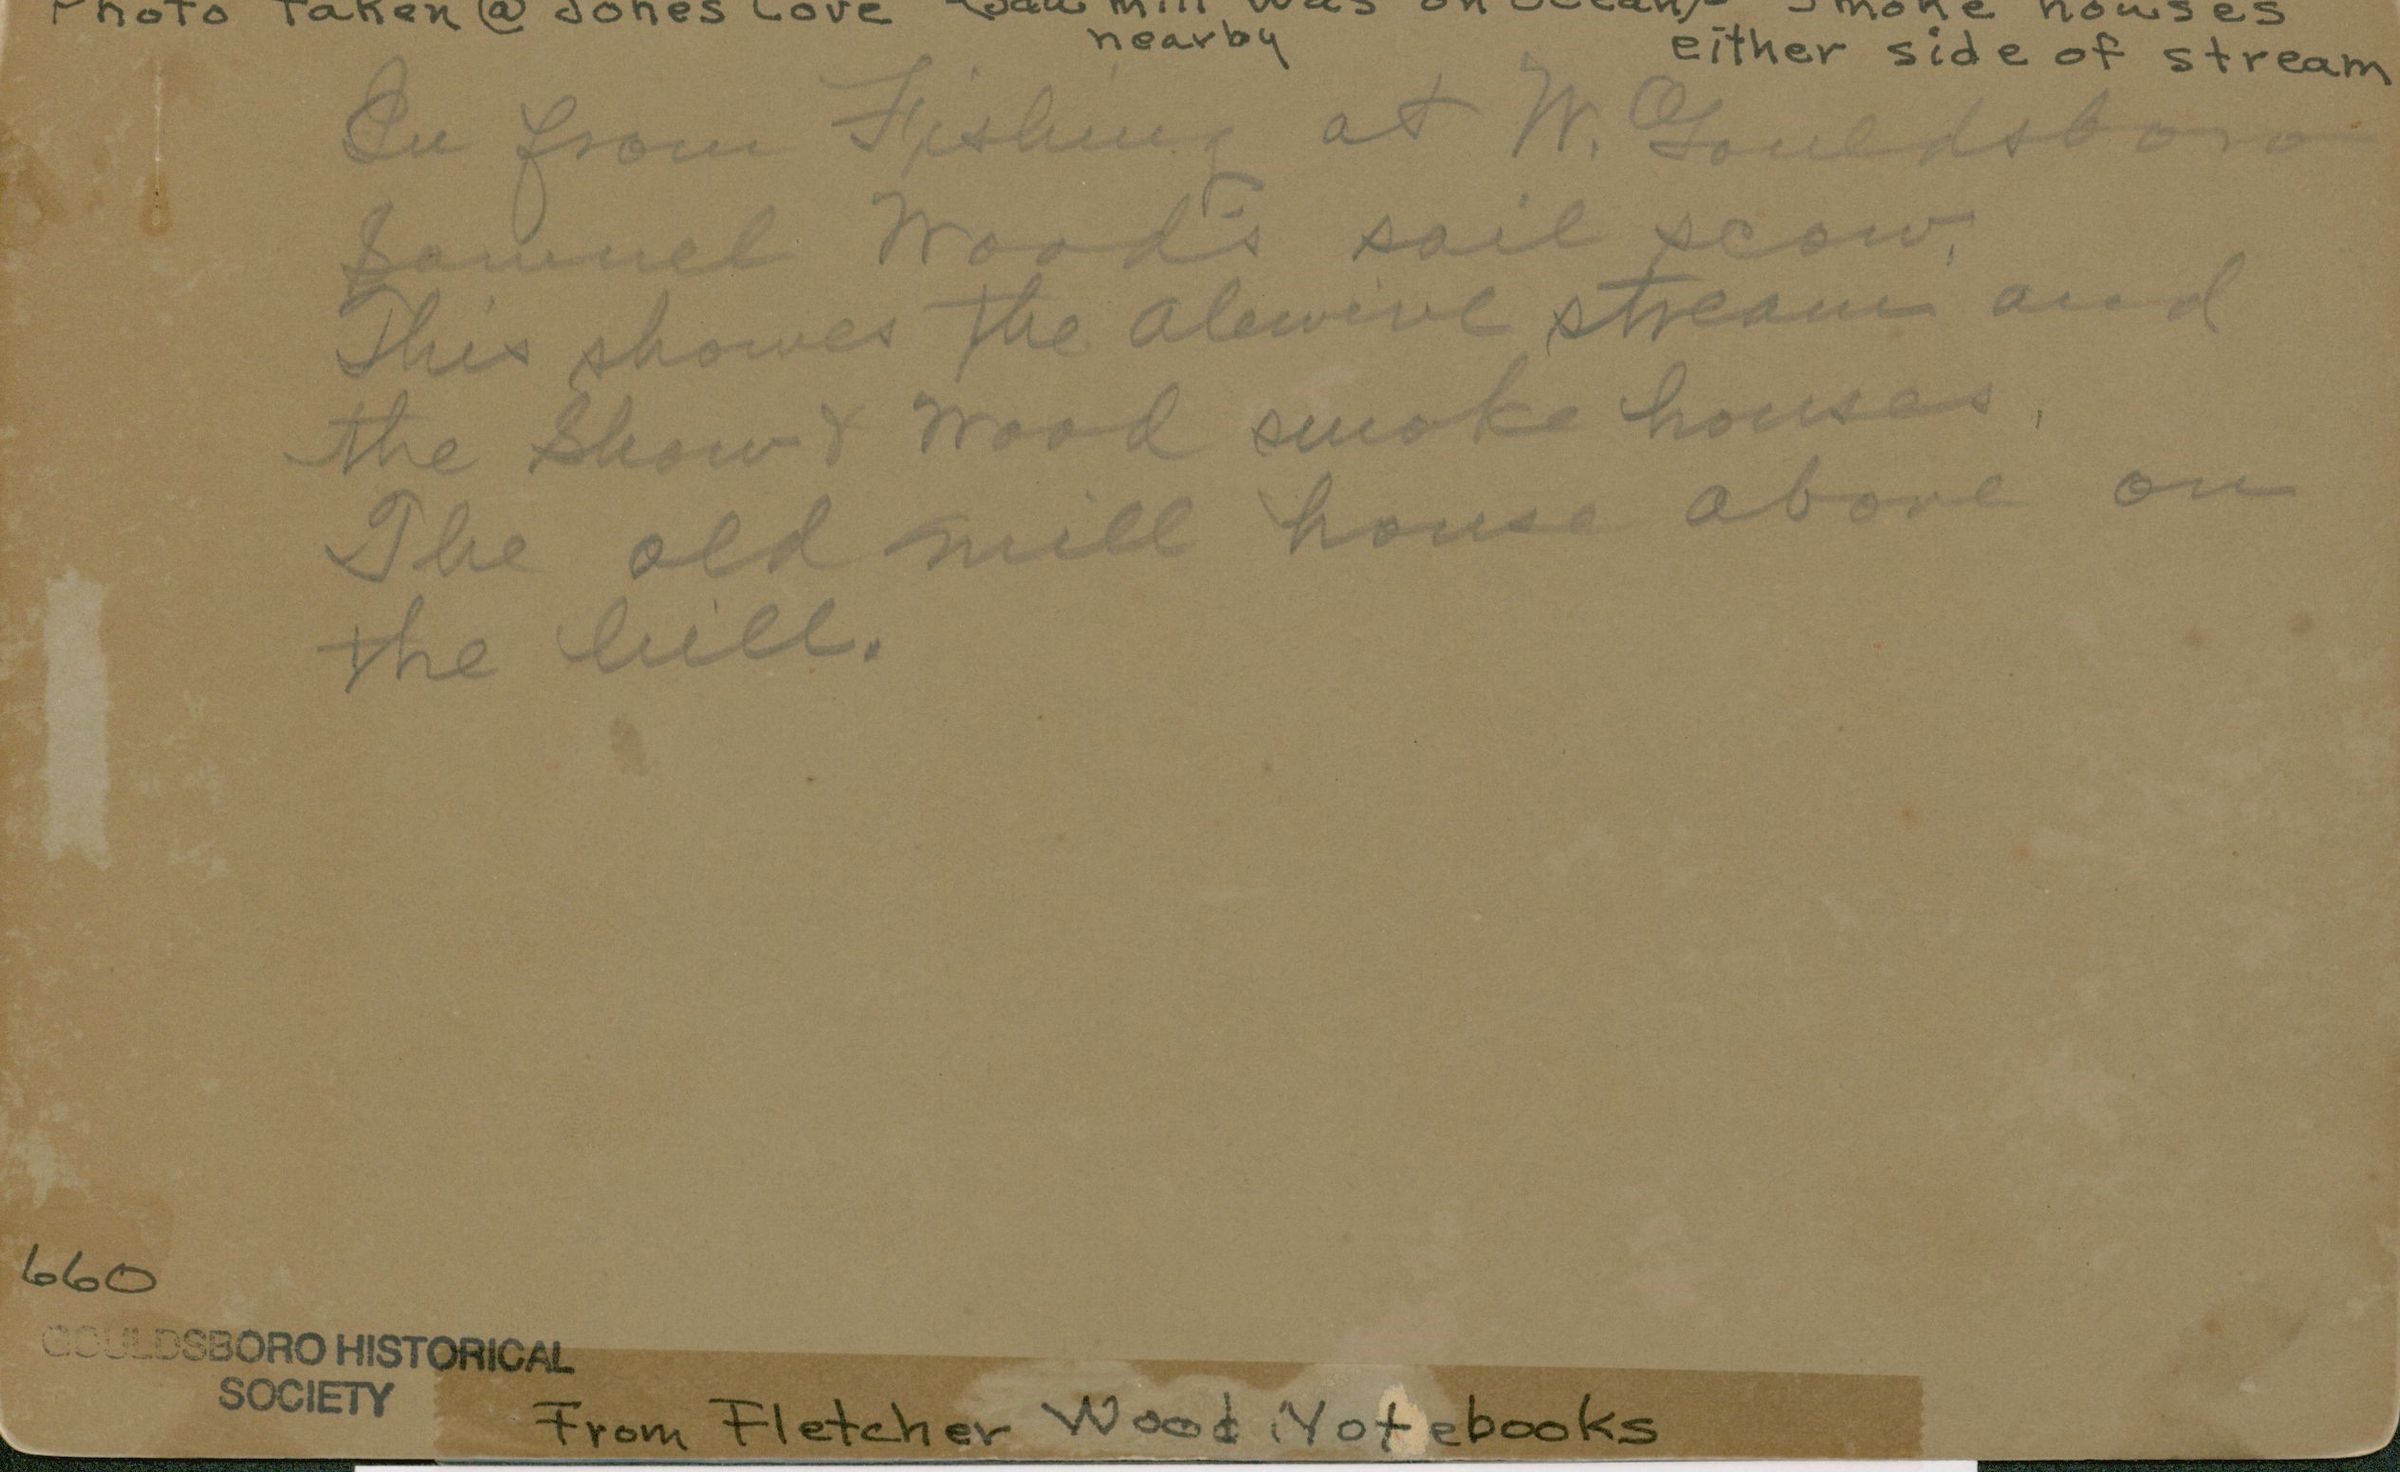 Photo Taken @ Jones Cove (Saw mill was on ocean) - Smoke houses
nearby
either side of stream
In from Fishing at W. Gouldsboro
Samuel Wood's sail scow.
This showes the alewive stream and
the Shaw & Wood smoke houses.
The old mill house above on
the hill.
660
GOULDSBORO HISTORICAL
SOCIETY
From Fletcher Wood Notebooks